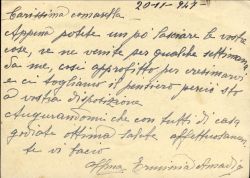 20-11-947
Carissima comarella
Appena potete un po' lasciare le vostre
cose, se ne venite per qualche settimana
da me, così approfitto per cresimarvi
e ci togliamo il pensiero perciò sto
a vostra disposizione
Augurandomi che con tutti di casa
godiate ottima salute affettuosam.
te vi bacio
Aff.ma Erminia Amadi